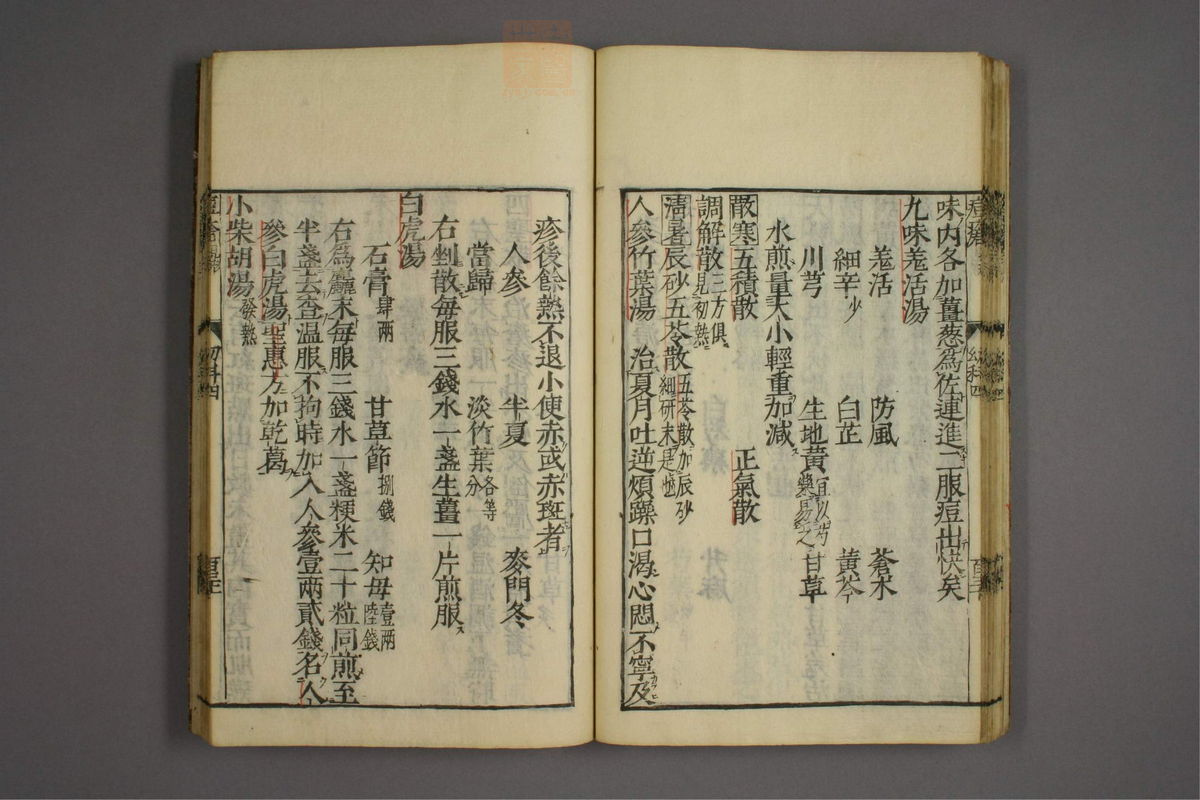 味內各加薑葱爲佐連進二服痘出快矣
九味羗活湯
羗活 防風 蒼朮
細辛少 白芷 黃芩
川芎 生地黃宜以芍藥易之 甘草
水煎量大小輕重加減
散寒五積散 正氣散
調解散三方俱見初熱
淸暑辰砂五苓散五苓散加辰砂細研末是也
人參竹葉湯 治夏月吐逆煩躁口渴心悶不寧及
疹後餘熱不退小便赤或赤斑者
人參 半夏 麥門冬
當歸 淡竹葉各等分
右剉散每服三錢水一盞生薑一片煎服
白虎湯
石膏肆兩 甘草節捌錢 知母壹兩陸錢
右爲麤末每服三錢水一盞粳米二十粒同煎至
半盞去査溫服不拘時加入人參壹兩貳錢名人
參白虎湯聖惠方加乾葛
小柴胡湯發熱
幼科四